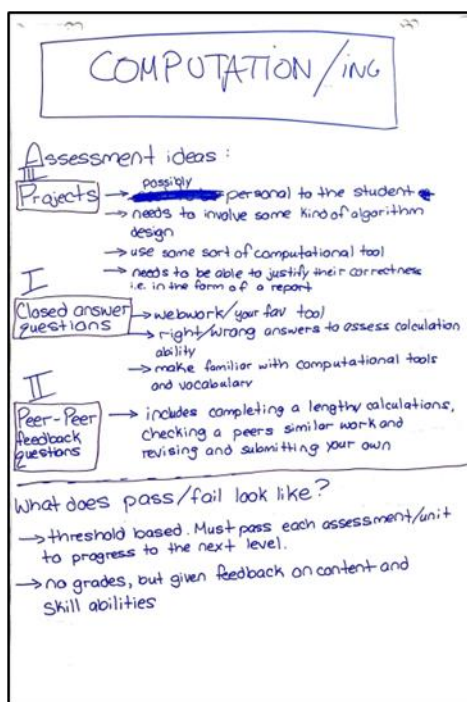 COMPUTATION/ING
Assessment ideas:
III
possibly
Projects → personal to the student
→ needs to involve some kind of algorithm
design
→ use some sort of computational tool
→ needs to be able to justify their correctness
i.e. in the form of a report
I
Closed answer → webwork/your fav tool
questions → right/wrong answers to assess calculation
ability
→ make familiar with computational tools
and vocabulary
II
Peer-Peer → includes completing a lengthy calculations,
feedback checking a peers similar work and
questions revising and submitting your own
What does pass/fail look like?
→ threshold based. Must pass each assessment/unit
to progress to the next level.
→ no grades, but given feedback on content and
skill abilities